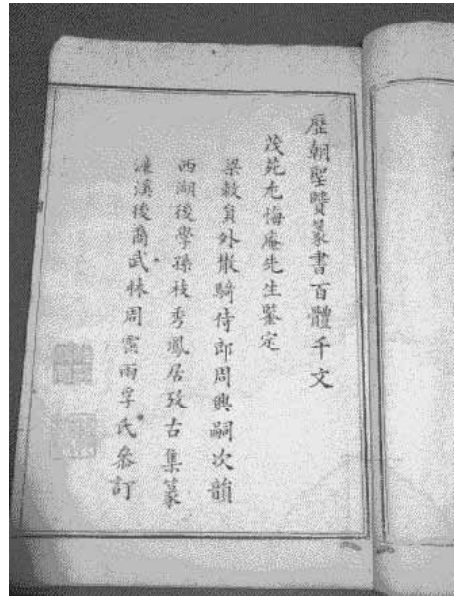 歷朝聖賢篆書百體千文
茂苑尤悔庵先生鑒定
梁敕員外散騎侍郎周興嗣次韻
西湖後學孫枝秀鳳居攷古集篆
濂溪後裔武林周霱雨孚氏叅訂